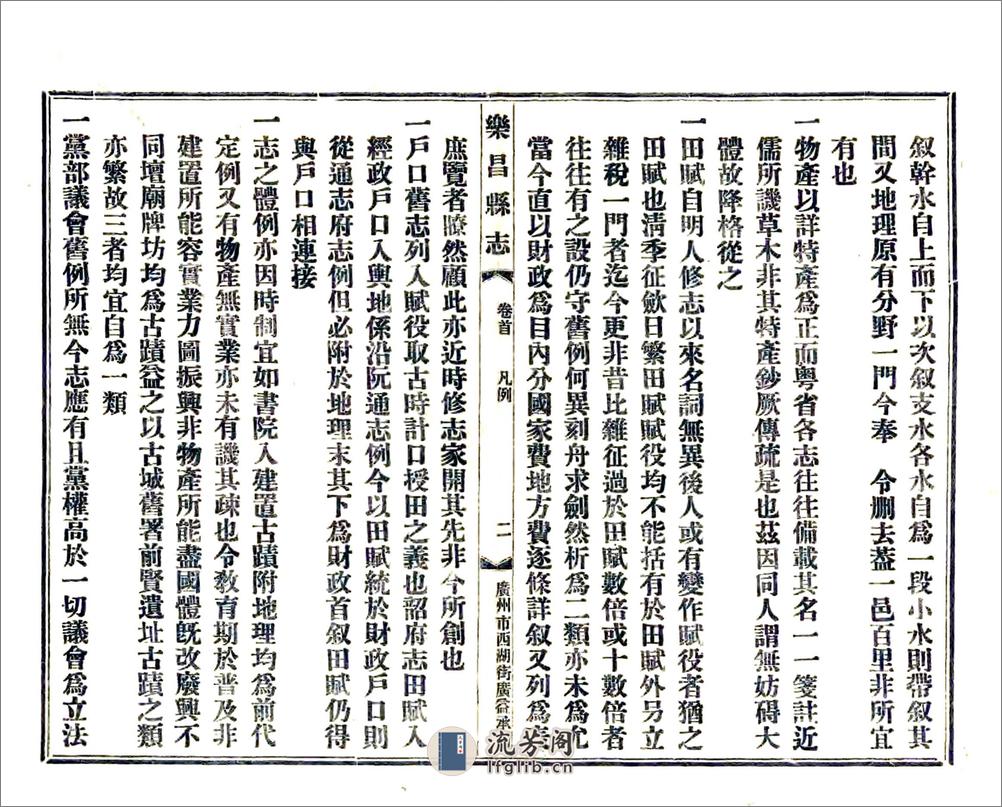 叙幹水自上而下以次叙支水各水自爲一段小水則帶叙其
間又地理原有分野一門今奉　令删去葢一邑百里非所宜
有也
一物產以詳特產爲正而粤省各志往往備載其名一一箋註近
儒所譏草木非其特產鈔厥傳疏是也茲因同人謂無妨碍大
體故降格從之
一田賦自明人修志以來名詞無異後人或有變作賦役者猶之
田賦也淸季征歛日繁田賦賦役均不能括有於田賦外另立
雜稅一門者迄今更非昔比雜征過於田賦數倍或十數倍者
往往有之設仍守舊例何異刻舟求劍然析爲二類亦未爲允
當今直以財政爲目內分國家費地方費逐條詳叙又列爲表
樂昌縣志
卷首　凡例
二
廣州市西湖街廣益承
庶覽者瞭然顧此亦近時修志家開其先非今所創也
一戶口舊志列入賦役取古時計口授田之義也韶府志田賦入
經政戶口入輿地係沿阮通志例今以田賦統於財政戶口則
從通志府志例但必附於地理末其下爲財政首叙田賦仍得
與戶口相連接
一志之體例亦因時制宜如書院入建置古蹟附地理均爲前代
定例又有物產無實業亦未有譏其疎也今敎育期於普及非
建置所能容實業力圖振興非物產所能盡國體旣改廢興不
同壇廟牌坊均爲古蹟益之以古城舊署前賢遺址古蹟之類
亦繁故三者均宜自爲一類
一黨部議會舊例所無今志應有且黨權高於一切議會爲立法
流芳阁
lfglib.cn